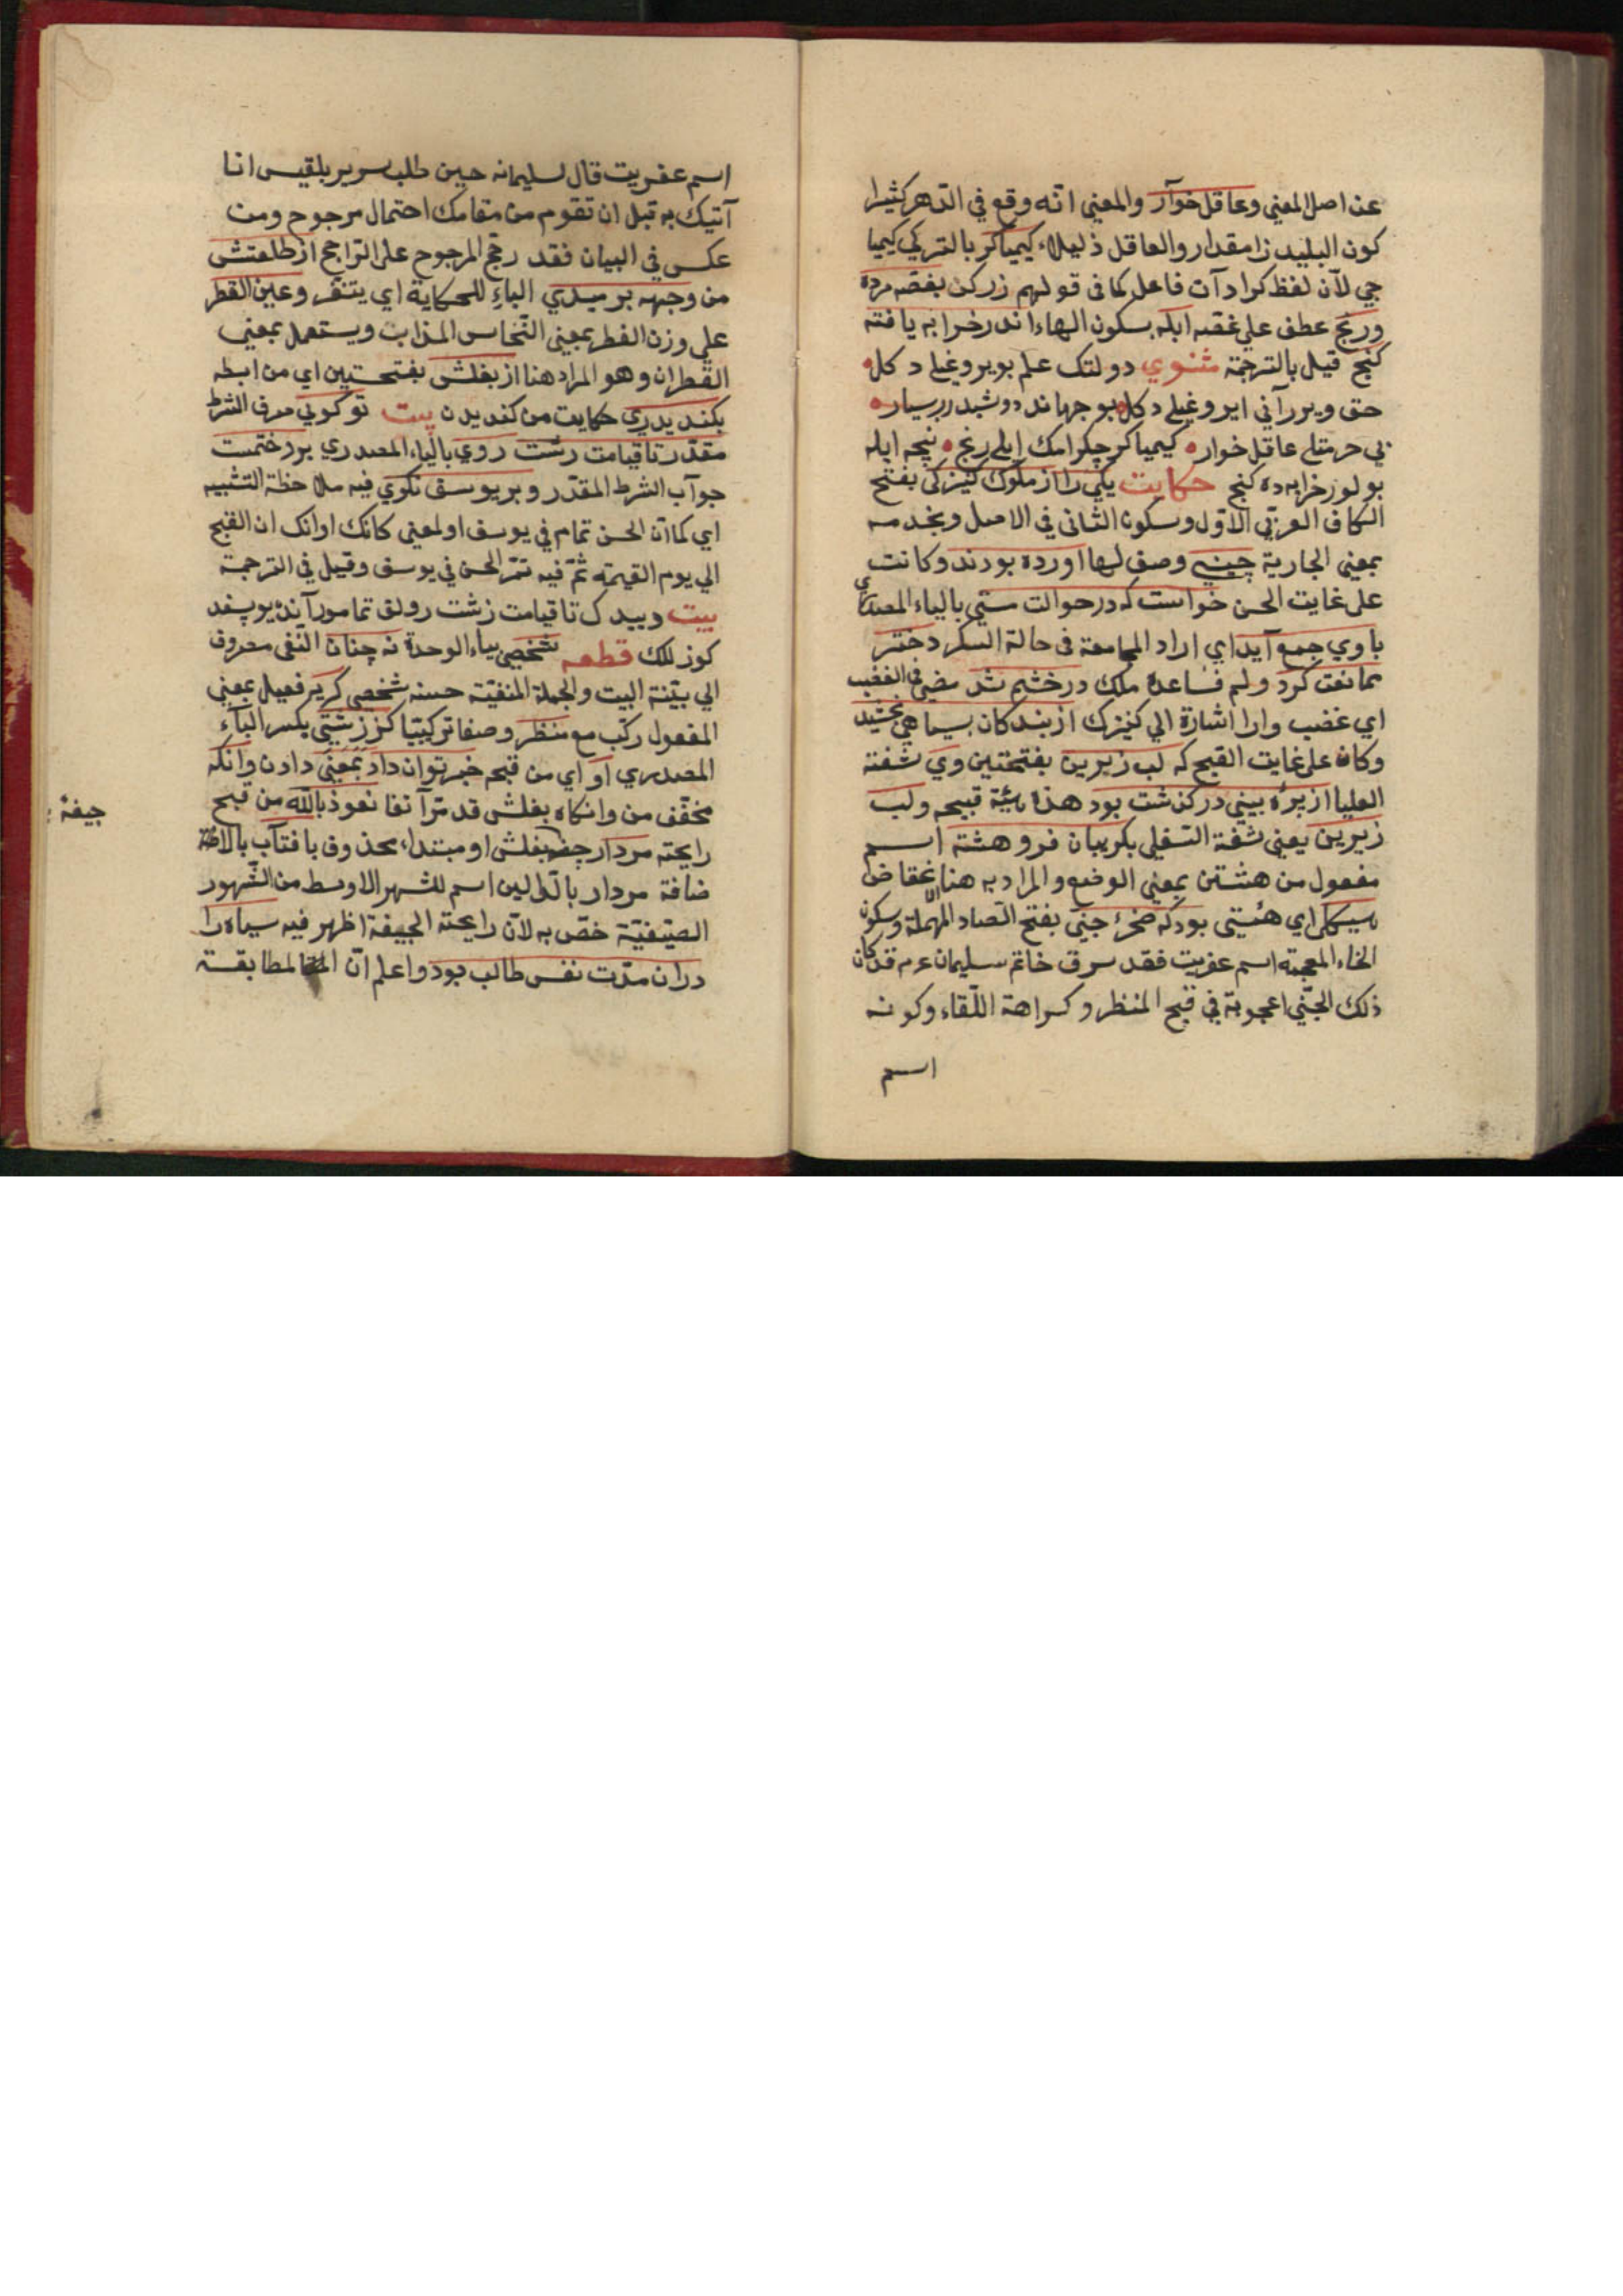 عن اصل المعني وعاقل خوآر والمعني انّه وقع في الدّهر كثيرا
كون البليد ذا مقدار والعاقل ذليلا، كيمياكر بالتركي كيميا
جي لآن لفظ كر ادآت فاعل كما في قولهم زركن بغصّه مرده
ورنج عطف علي غصّه ابله بسكون الهاء اندر خرابه يافته
كنج قيل بالترجمة مثنوي دولتك علم بوير وغيلى دكل
حق ويرر آني اير وغيلى دكل بو جهاند دوشيدر بسيار
بي حرمتلى عاقل خوار كيمياكر چكر امك ايلى رنج نيچه ابله
بولور خرابه ده كنج حكايت يكي را از ملوك كنيزكى بفتح
الكاف العربّي الاوّل وسكون الثاني في الاصل ويخدمه
بمعني الجارية چيني وصف لها اورده بودند وكانت
على غايت الحسن خواست كه در حوالت مستي بالياء المصدري
باوي جمع آيد اي اراد المجامعة في حالة السكر دختر
ممانعت كرد ولم تساعده ملك در خشم شد مضي في الغضب
اي غضب وارا اشارة الي كنيزك از بندكان بسياهي بخشيد
وكان على غايت القبح كه لب زيرين بفتحتين وي شفته
العليا از پرّه بيني در كذشت بود هذا هيئة قبيحه ولب
زيرين يعني شفته السّفلي بكريبان فرو هشته اسم
مفعول من هشتن بمعني الوضع والمراد به هنا
هيكلى اي هئيتى بود كه صخرء جنّي بفتح الصاد المهملة وسكون
الخاء المعجمة اسم عفريت فقد سرق خاتم سليمان عم قد كان
ذلك الجنّي اعجوبة في قبح المنظر وكراهة اللّقاء وكونه
اسم
اسم عفريت قال لسليمانه حين طلب سرير بلقيس انا
آتيك به قبل ان تقوم من مقامك احتمال مرجوح ومن
عكس في البيان فقد رجّح المرجوح على الرّاجح از طلعتش
من وجهه برميدي الباء للحكاية اي يتنفّر وعين القطر
علي وزن الفطر بمعني النّحاس المذاب ويستعمل بمعني
القطران وهو المراد هنا از بغلش بفتحتين اي من ابطه
بكنديدري حكايت من كنديدن بيت تو كوني حرف الشرط
مقدّر تا قيامت رشت روي بالياء المصدري بر وختمست
جوآب الشرط المقدّر وبر يوسف نكوي فيه ملاحظة التشبيه
اي كما انّ الحسن تمام في يوسف او لمعني كانك اوانك ان القبح
الي يوم القيمة ثمّ فيه تمّر الحسن في يوسف وقيل في الترجمة
بيت وييدك تا قيامت زشت رولق تمامور آنده يوسفد
كوزللك قطعه شخصي بياء الوحدة نه چنان النّفي معروف
الي بيّنة البيت والجملة المنفيّة حسنه شخصي كريه فعيل بمعني
المفعول ركّب مع منظر وصفا تركيبيّا كز زشتي بكسر الياء
المصدري او اي من قبحه خبر توان داد بمعني دادن وانكه
مخفّف من وانكاه بغلش قد مرّ آنفا نعوذ بالله من قبح
رايحته مردار بغلش او مبتداء محذوف بافتآب بالا
ضافة مردار بالدّالين اسم للشهر الاوسط من الشّهور
الصّيفيّة خصّ به لانّ رايحته الجيفة اظهر فيه سياه را
دران مدّت نفس طالب بود واعلم انّ المطابقة
جيفة